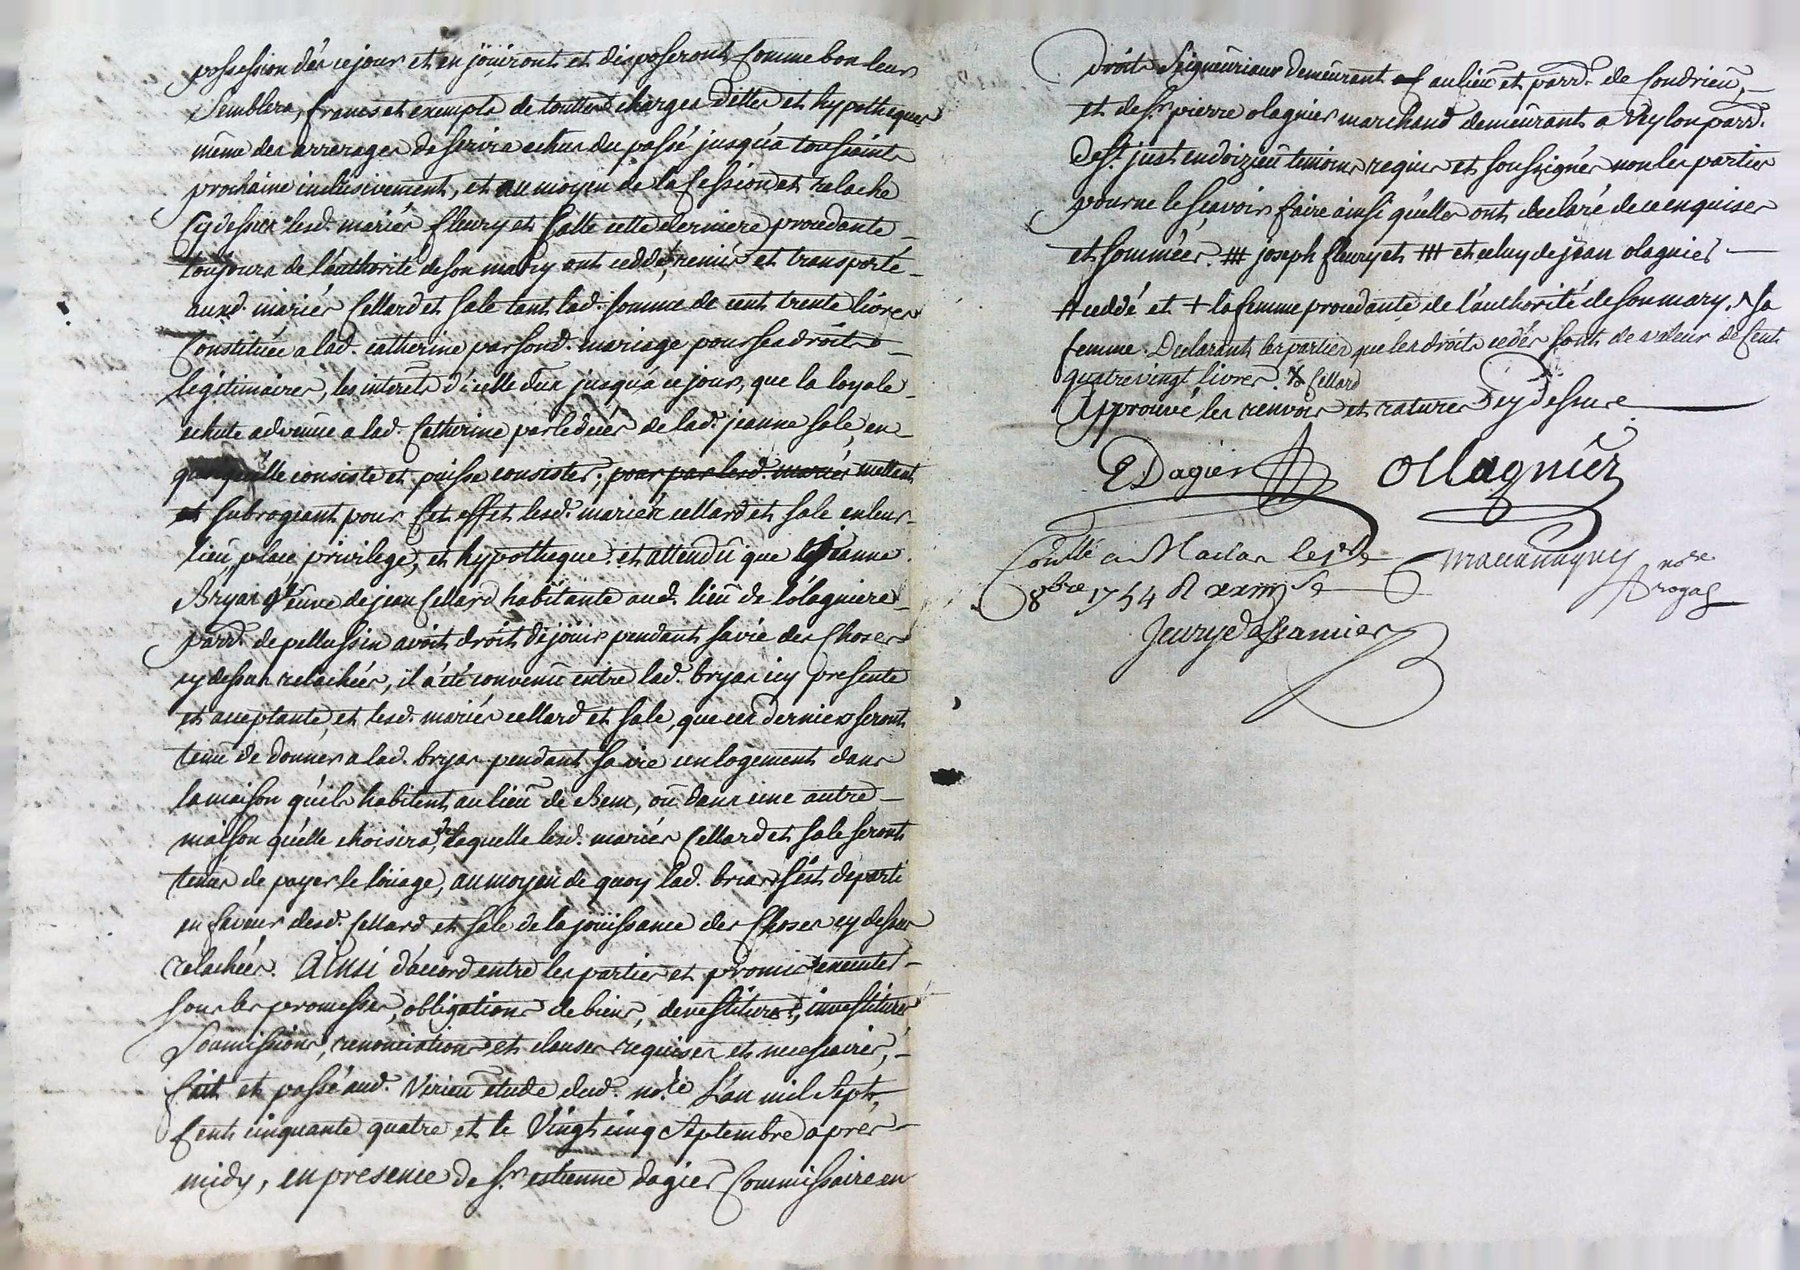 possession dés ce jour et en joüiront et disposeront Comme bon leur
Semblera, francs et exempts de touttes charges dettes et hypotheques
même des arrerages de servis echus du passé jusqu'a toussaints
prochaine inclusivement, et au moyen de la Cession et relache
Cy dessus lesd. mariés fleury et Salle cette derniere procedante
toujours de l'authorité de son mary ont ceddé, remis et transporté
auxd. mariés Cellard et Sale tant lad. somme de cent trente livres
Constituée a lad. catherine par sond. mariage pour ses droits
legitimaires, les interêts d'icelle dus jusqu'a ce jour, que la loyale
echute advenüe a lad. Catherine par le décés de lad. jeanne Sale, en
quoy qu'elle consiste et puisse consister, pour par lesd. mariés mettent
et subrogeant pour Cet effet lesd. mariés cellard et Sale en leur
lieu, place privilege, et hypotheque. et attendu que jeanne
Bryas veuve de jean Cellard habitante aud. lieu de l'olagniere
parr. de pellussin avoit droit de joüir pendant sa vie des Choses
cy dessus relachées, il a été convenu entre lad. bryas icy presente
et acceptante, et lesd. mariés cellard et Sale, que ces derniers seront
tenu de donner a lad. bryas pendant sa vie un logement dans
la maison qu'ils habitent au lieu de Bem, où dans une autre
maison qu'elle choisira, de laquelle lesd. mariés Cellard et Sale seront
tenus de payer le loüage, au moyen de quoy lad. brias s'est departi
en faveur desd. Cellard et Sale de la joüissance des Choses cy dessus
relachées. Ainsi d'accord entre les parties et promis executer
sous les promesses, obligations de biens, devestitures, investitures
Soumissions, renonciations et clauses requises et necessaires,
fait et passé aud. Virieu étude dud. no.re L'an mil Sept
Cent cinquante quatre et le Vingt cinq Septembre apres
midy, en presence de S.r estienne dagier Commissaire en
droits Seigneuriaux demeurant au lieu et parr. de Condrieu,
et de S.r pierre olagnier marchand demeurant a Véylon parr.
de S.t just en doizieu temoins requis et soussignés non les parties
pour ne le sçavoir faire ainsi qu'elles ont declaré de ce enquises
et sommées. ## joseph fleury et ## et celuy de jean olagnier
# ceddé et + la femme procedante de l'authorité de son mary. ^ sa
femme. Declarants les parties que les droits cedés sont de valeur de Cent
quatre vingt livres. Cellard
Approuvé les renvois et ratures Cy dessus
E Dagier Ollagnier
Collé a Maclas le
8bre 1754 R
no.re
royal